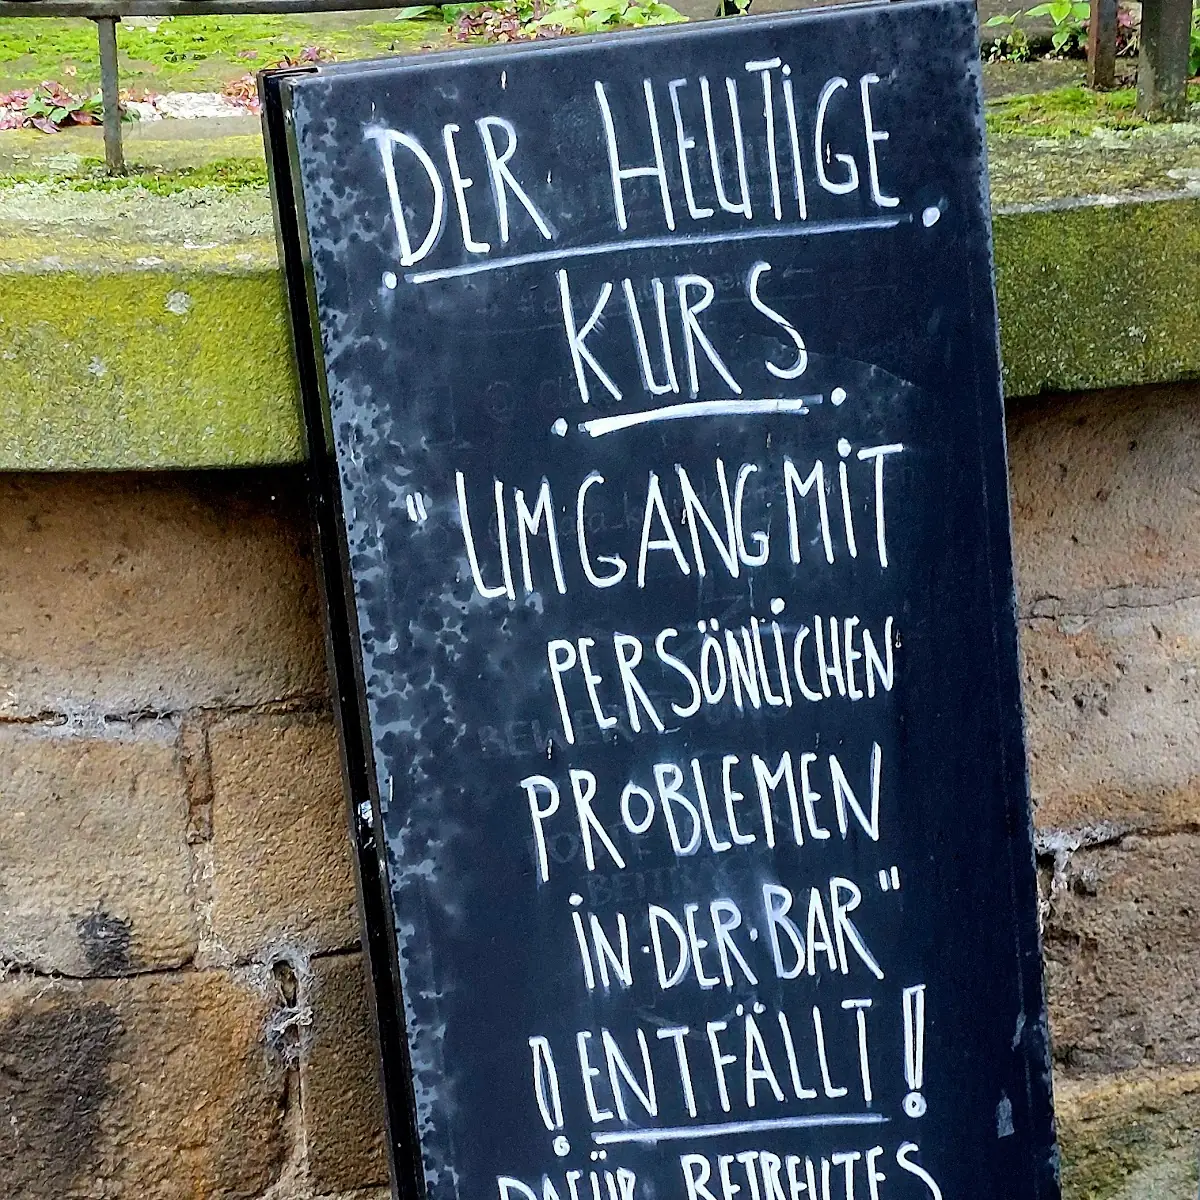 DER HEUTIGE
KURS
"UMGANG MIT
PERSÖNLICHEN
PROBLEMEN
IN·DER·BAR"
!ENTFÄLLT!
DAFÜR BETREUTES